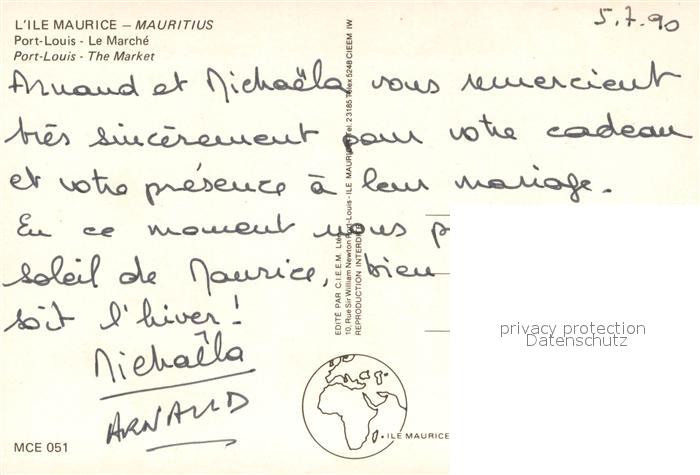 L'ILE MAURICE – MAURITIUS
Port-Louis - Le Marché
Port-Louis - The Market
5.7.90
Arnaud et Michaëla vous remercient
très sincèrement pour votre cadeau
et votre présence à leur mariage.
En ce moment nous p
soleil de Maurice, bien
soit l'hiver!
Michaëla
ARNAUD
EDITÉ PAR C.I.E.E.M. Ltée
10, Rue Sir William Newton Port-Louis - ILE MAURICE Tel. 2 3185 Telex 5248 CIEEM IW
REPRODUCTION INTERDITE
privacy protection
Datenschutz
ILE MAURICE
MCE 051